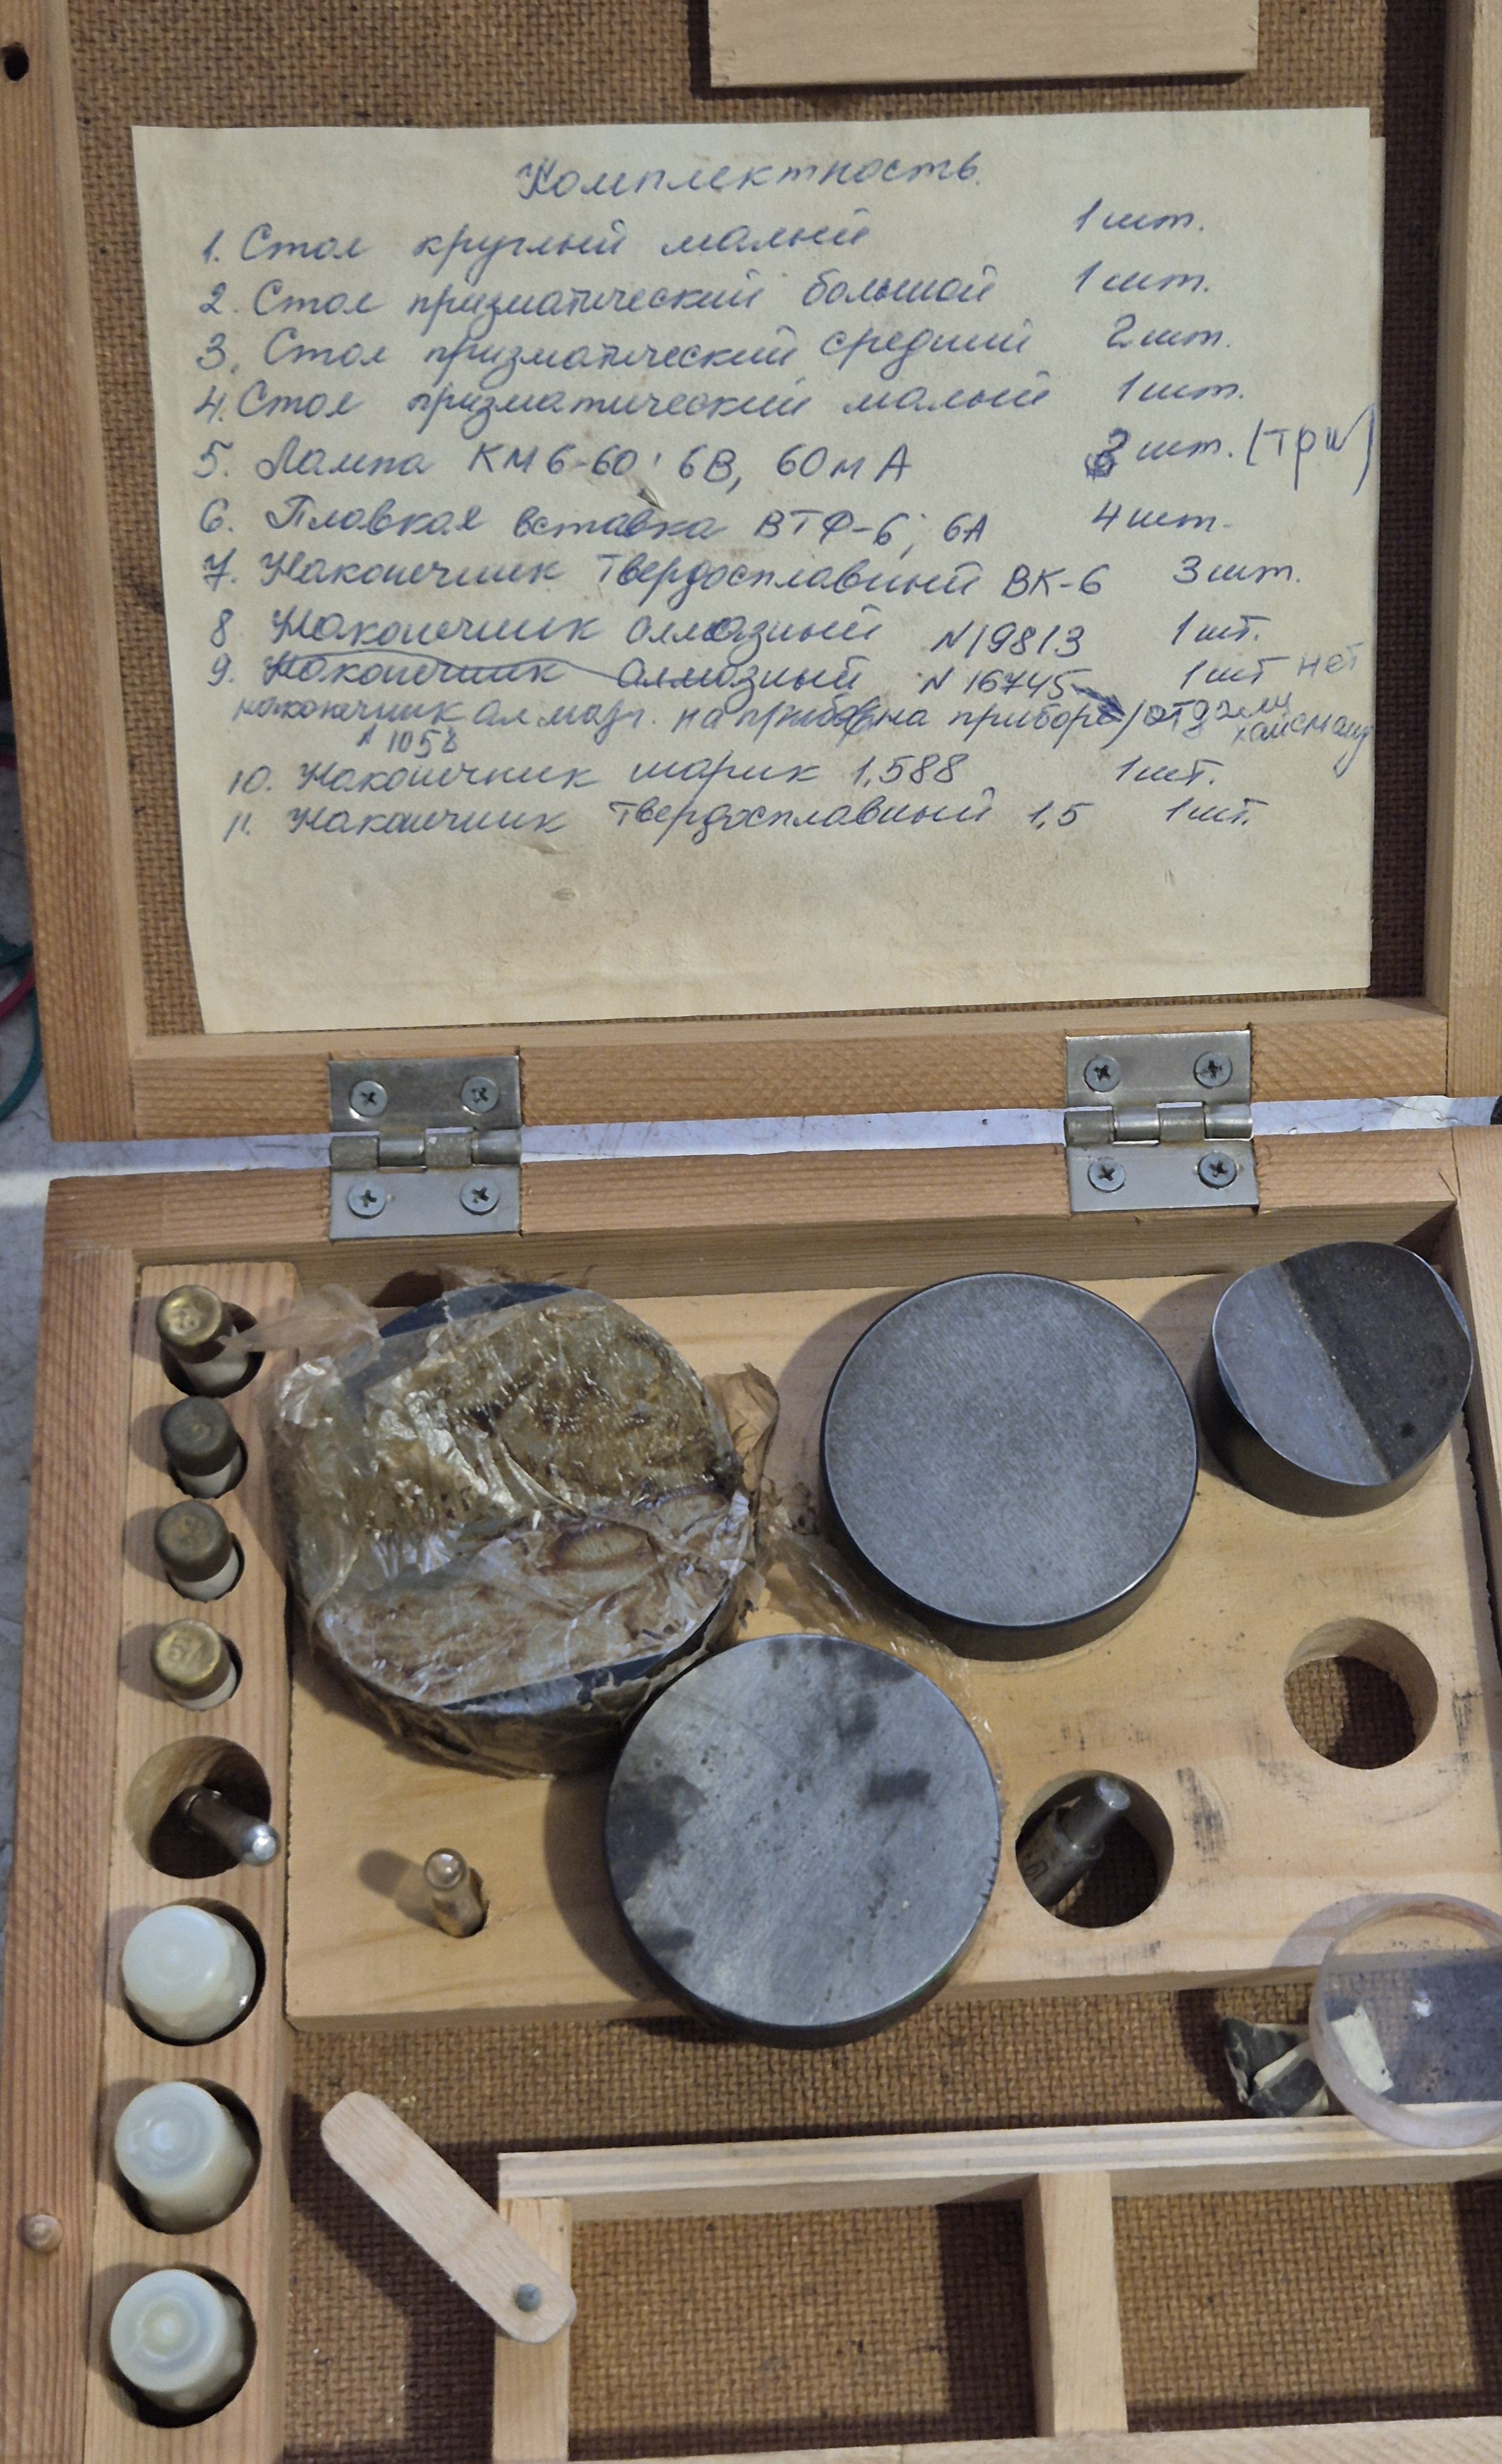 Комплектность.
1. Стол круглый малый 1 шт.
2. Стол призматический большой 1 шт.
3. Стол призматический средний 2 шт.
4. Стол призматический малый 1 шт.
5. Лампа КМ 6-60; 6В, 60мА 3 шт. (три)
6. Плавкая вставка ВТФ-6; 6А 4 шт.
7. Наконечник твердосплавный ВК-6 3 шт.
8. Наконечник алмазный N19813 1 шт.
9. Наконечник алмазный N 16745 1 шт нет
наконечник алмазн. на приборе
N 1058
10. Наконечник шарик 1,588 1 шт.
11. Наконечник твердосплавный 1,5 1 шт.